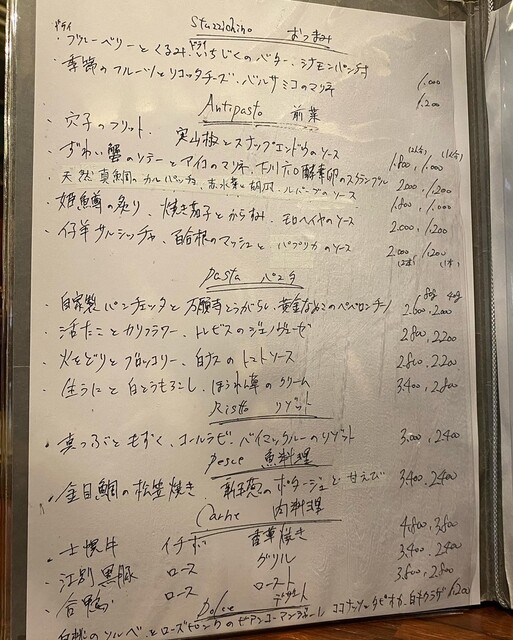 Stuzzichino おつまみ
・ドライブルーベリーとくるみ、ドライいちじくのバター、シナモンパンチ 1.000
・季節のフルーツとリコッタチーズ、バルサミコのマリネ 1.200
Antipasto 前菜
(2人分) (1人分)
・穴子のフリット、実山椒とスナップエンドウのソース 1.800 , 1.000
・ずわい蟹のソテーとアイコのマリネ、下川六〇酵素卵のスクランブル 2.000 , 1.200
天然真鯛のカルパッチョ、赤水菜と胡瓜、ルバーブのソース 1.800 , 1.000
・姫鱒の炙り、焼き茄子とからすみ、モロヘイヤのソース 2.000 , 1.200
・仔羊サルシッチャ、百合根のマッシュとパプリカのソース 2.000 , 1.200
(2本) (1本)
Pasta パスタ
80g 40g
・自家製パンチェッタと万願寺とうがらし、黄金なめこのペペロンチーノ 2.600 , 2.000
・活たことカリフラワー、トレビスのジェノヴェーゼ 2.800 , 2.200
・火をどりとブロッコリー、白ナスのトマトソース 2.800 , 2.200
・生うにと白とうもろこし、ほうれん草のクリーム 3.400 , 2.800
Risotto リゾット
・真つぶともずく、コールラビ、バイマックルーのリゾット 3.000 , 2.400
Pesce 魚料理
・金目鯛の松笠焼き 新玉葱のポタージュと甘えび 3.400 , 2.400
Carne 肉料理
・十勝牛 イチボ 香草焼き 4.800 , 3.800
・江別黒豚 ロース グリル 3.400 , 2.400
・合鴨 ロース ロースト 3.800 , 2.800
Dolce デザート
白桃のソルベとローズピンクのビアンコマンジャーレ ココナッツとタピオカ、白キクラゲ 1.200